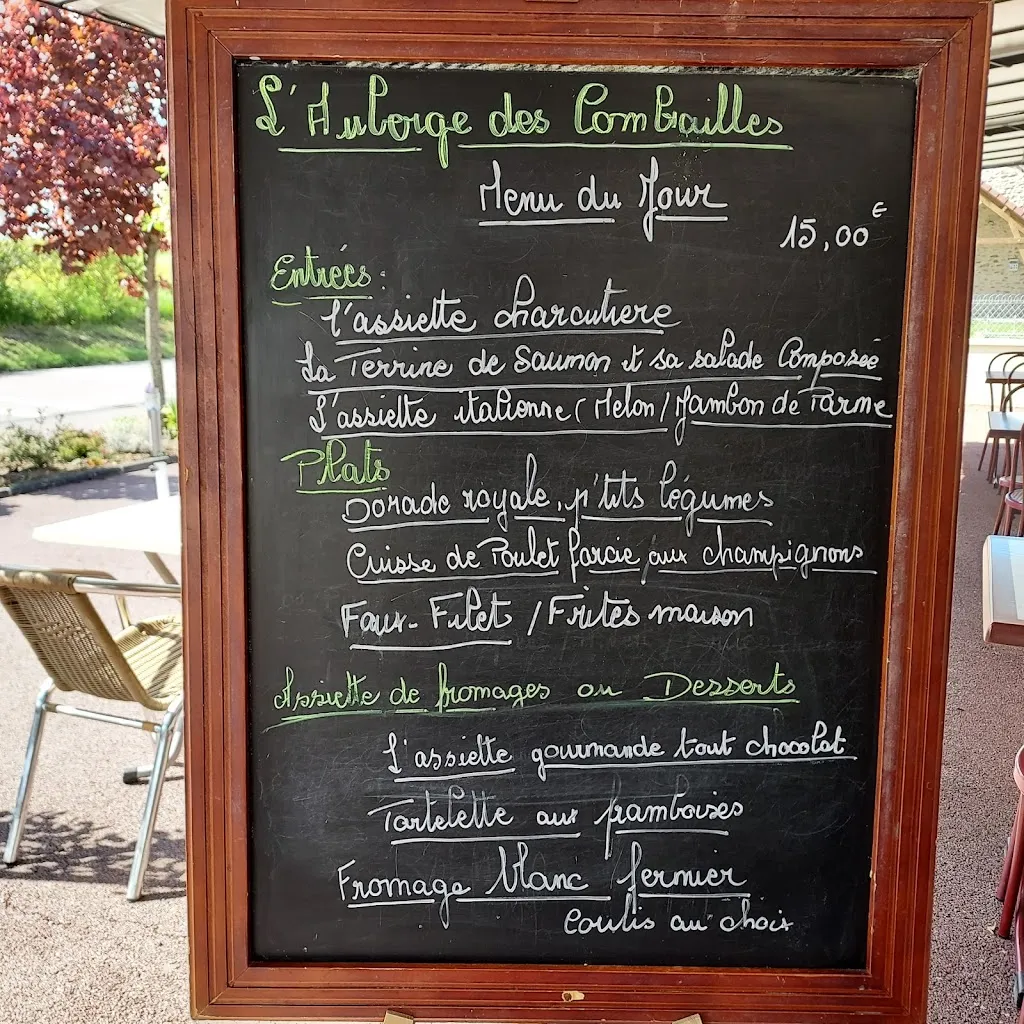 L'Auberge des Combrailles
Menu du Jour
15,00€
Entrées:
L'assiette charcutiere
La Terrine de Saumon et sa salade Composée
L'assiette italienne (Melon/Jambon de Parme
Plats
Dorade royale, p'tits légumes
Cuisse de Poulet farcie aux champignons
Faux-Filet / Frites maison
Assiette de fromages ou Desserts
L'assiette gourmande tout chocolat
Tartelette aux framboises
Fromage blanc fermier
Coulis au choix